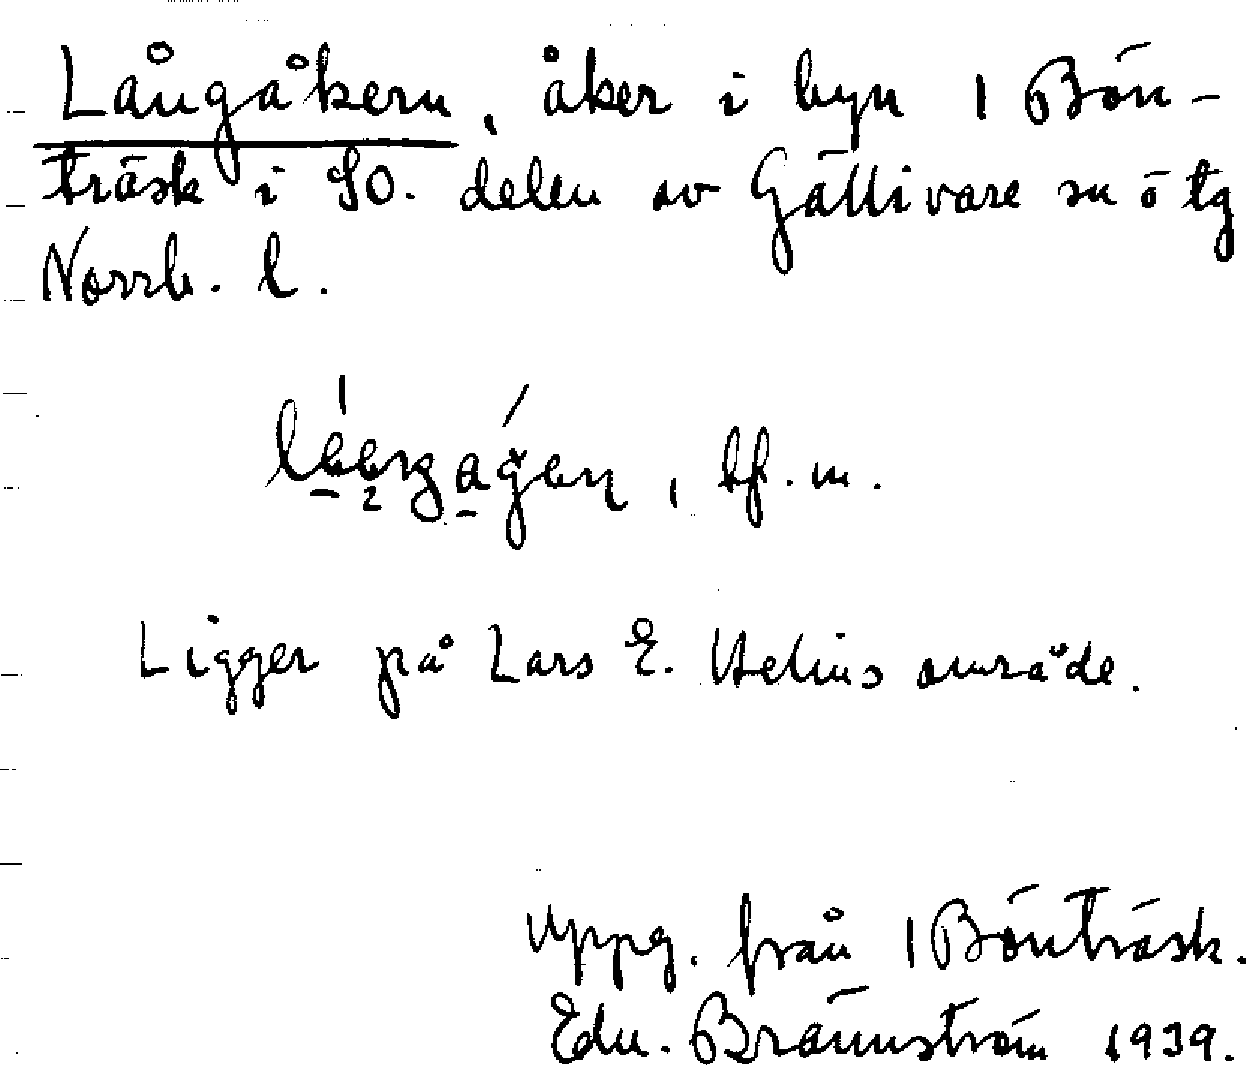 Långåkern, åker i byn 1 Bön-
träsk i SO. delen av Gällivare sn ö tg
Norrb. l.
, bf. m.
Ligger på Lars E. Helins område.
Uppg. från 1 Bönträsk.
Edv. Brännström 1939.